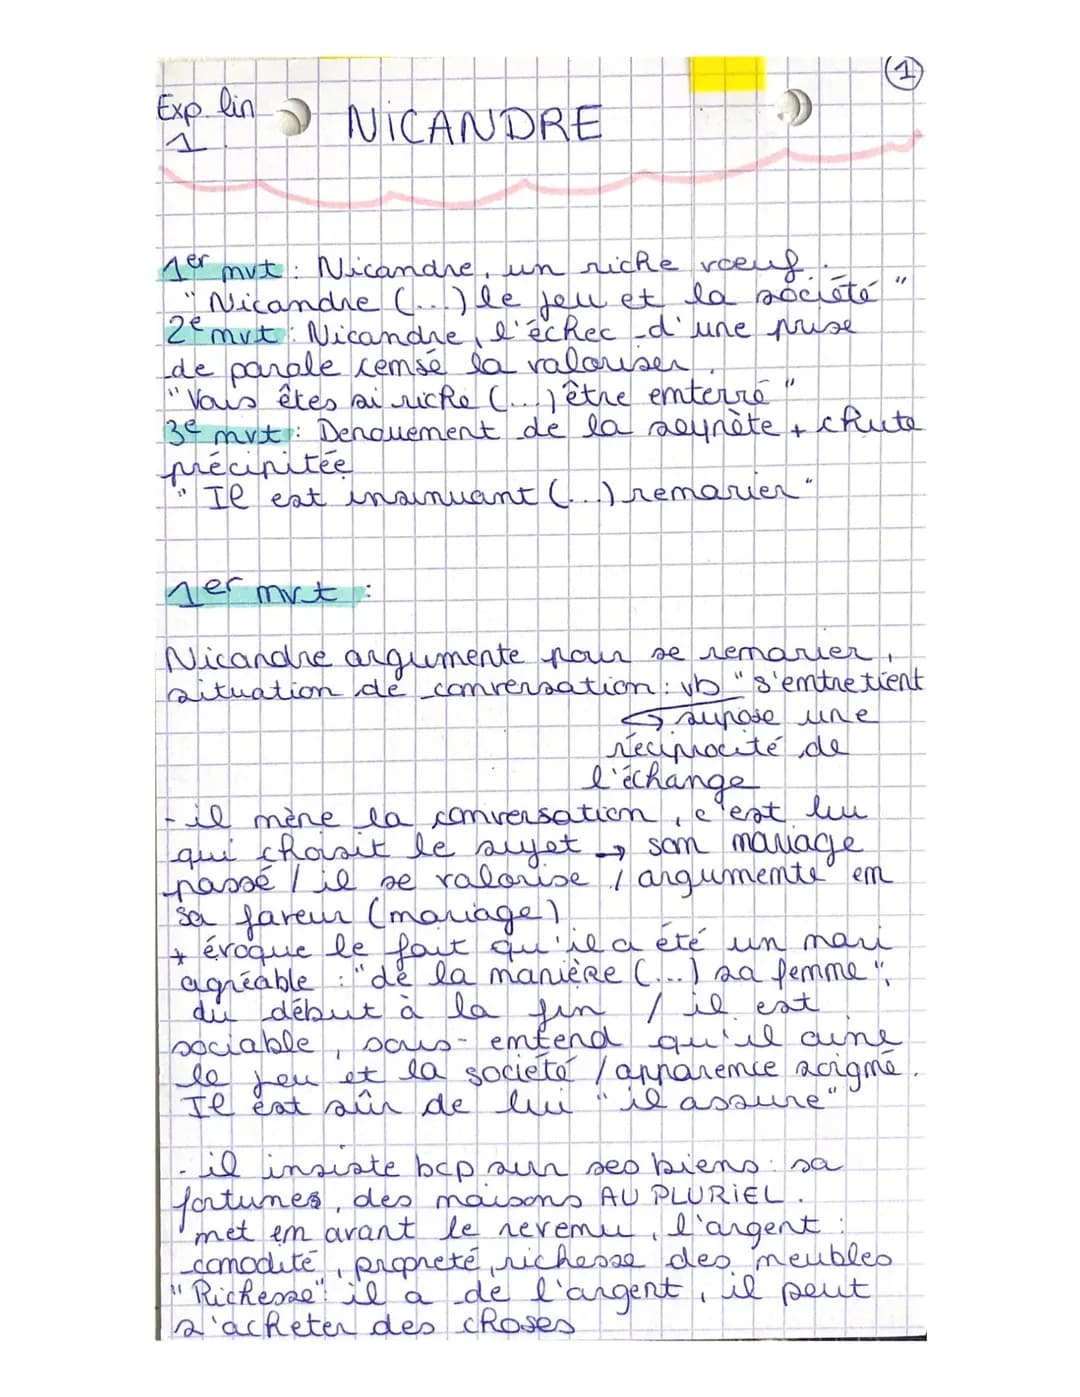 1
Exp. lin
1
NiCANDRE
1er mvt : Nicandre, un riche voeuf.
"Nicandre (...) le jeu et la société"
2e mvt : Nicandre, l'échec d'une prise
de parole censé la valoriser.
"Vous êtes si riche (...) être enterré"
3e mvt : Denouement de la seynète + chute
précipitée
"Il est insinuant (...) remarier"
1er mvt :
Nicandre argumente pour se remarier,
situation de conversation : vb "s'entretient
↪ supose une
réciprocité de
l'échange
- il mène la conversation, c'est lui
qui choisit le sujet → son mariage
passé / il se valorise / argumente en
sa faveur (mariage)
+ évoque le fait qu'il a été un mari
agréable : "de la manière (...) sa femme",
du début à la fin / il est
sociable, sous-entend qu'il aime
le jeu et la société / apparence soigné.
Il est sûr de lui "il assure"
- il insiste bcp sur ses biens : sa
fortunes, des maisons AU PLURiEL.
met en avant le revenu, l'argent :
comodité, propreté, richesse des meubles
"Richesse" : il a de l'argent, il peut
s'acheter des choses